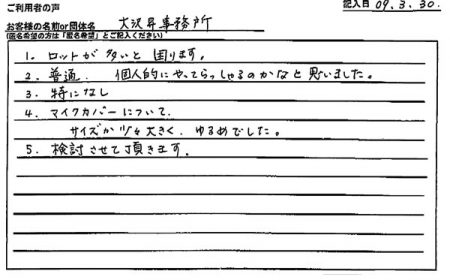 ご利用者の声
記入日 09.3.30.
お客様の名前or団体名 大沢昇事務所
(匿名希望の方は「匿名希望」とご記入ください)
1. ロットが多いと困ります。
2. 普通. 個人的にやってらっしゃるのかなと思いました。
3. 特になし
4. マイクカバーについて.
サイズが少々大きく、ゆるめでした。
5. 検討させて頂きます.